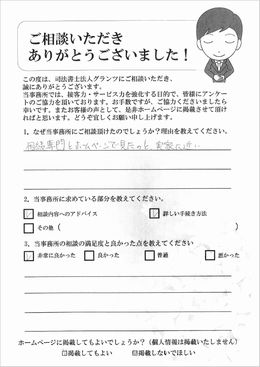 ご相談いただき
ありがとうございました！
この度は、司法書士法人グランツにご相談いただき、
誠にありがとうございます。
当事務所では、接客力・サービス力を強化する目的で、皆様にアンケー
トのご協力を頂いております。お手数ですが、ご協力くださいましたら
幸いです。またお客様の声として、是非ホームページに掲載させて頂け
ればと思います。どうぞ宜しくお願い申し上げます。
1. なぜ当事務所にご相談頂けたのでしょうか？理由を教えてください。
相続専門とホームページで見たのと、実家に近い
2. 当事務所に求めている部分を教えてください。
相談内容へのアドバイス 詳しい手続き方法
その他（ ）
3. 当事務所の相談の満足度と良かった点を教えてください
非常に良かった 良かった 普通 悪かった
ホームページに掲載してもよいでしょうか？（個人情報は掲載いたしません）
掲載してもよい 掲載しないでほしい